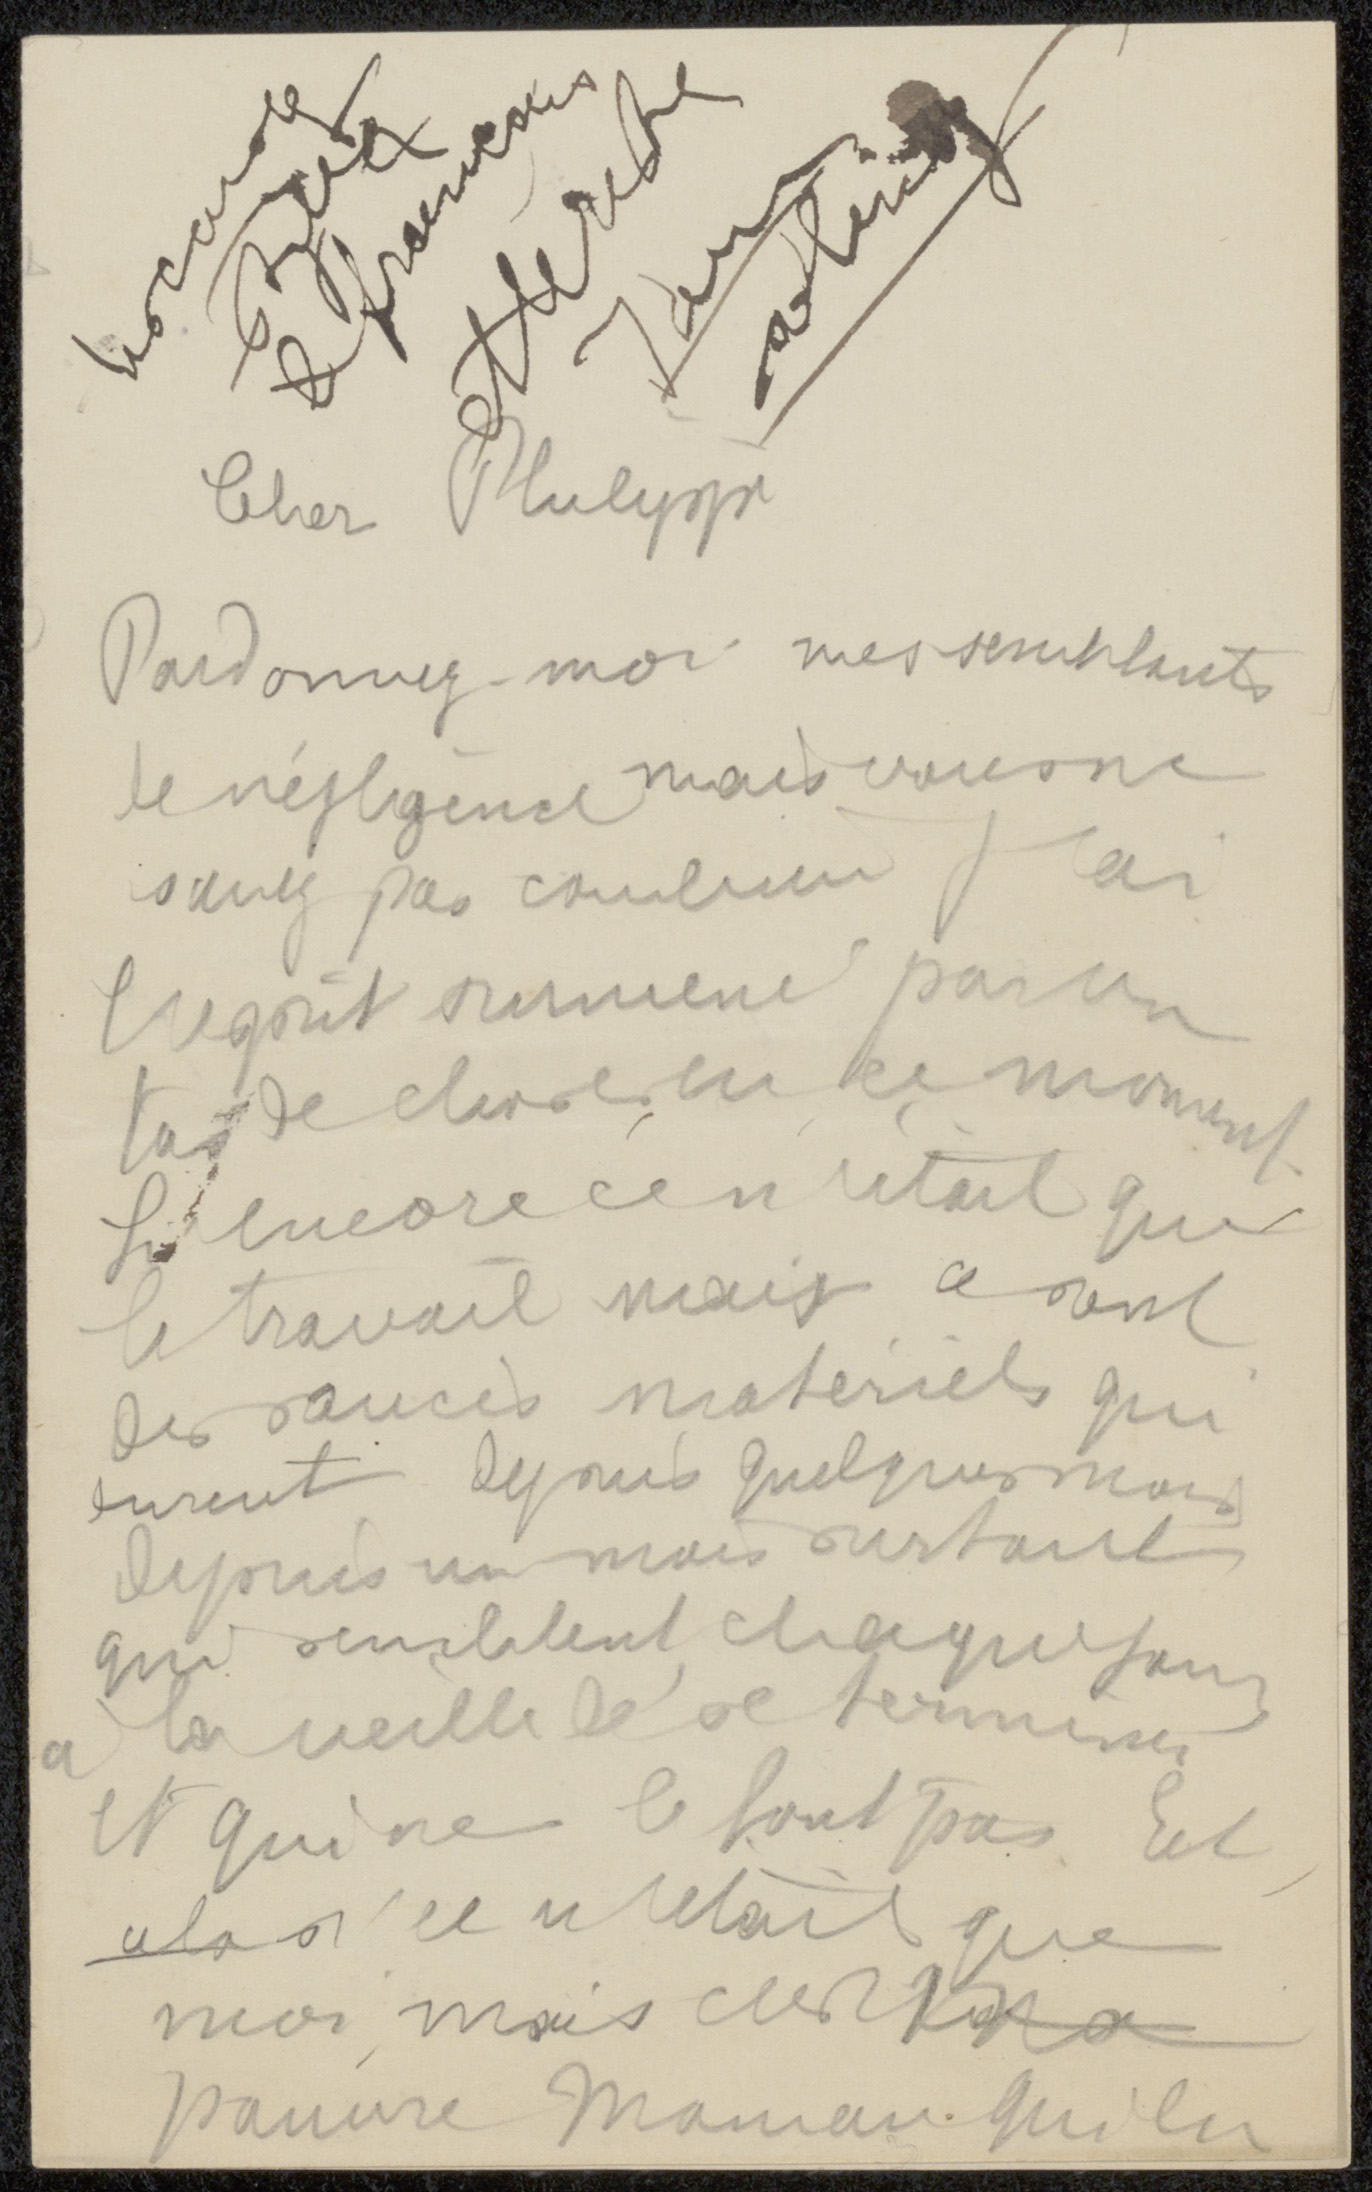 Cher Philippe
Pardonnez-moi mes semblants
de négligence mais vous ne
savez pas combien j'ai
l'esprit surmené par un
tas de choses en ce moment
Si encore ce n'était que
le travail mais ce sont
des soucis matériels qui
durent depuis quelques mois
depuis un mois surtout
qui semblent chaque jour
à la veille de se terminer
et qui ne le font pas Et
si ce n'était que
moi mais c'est
pauvre Maman qui en